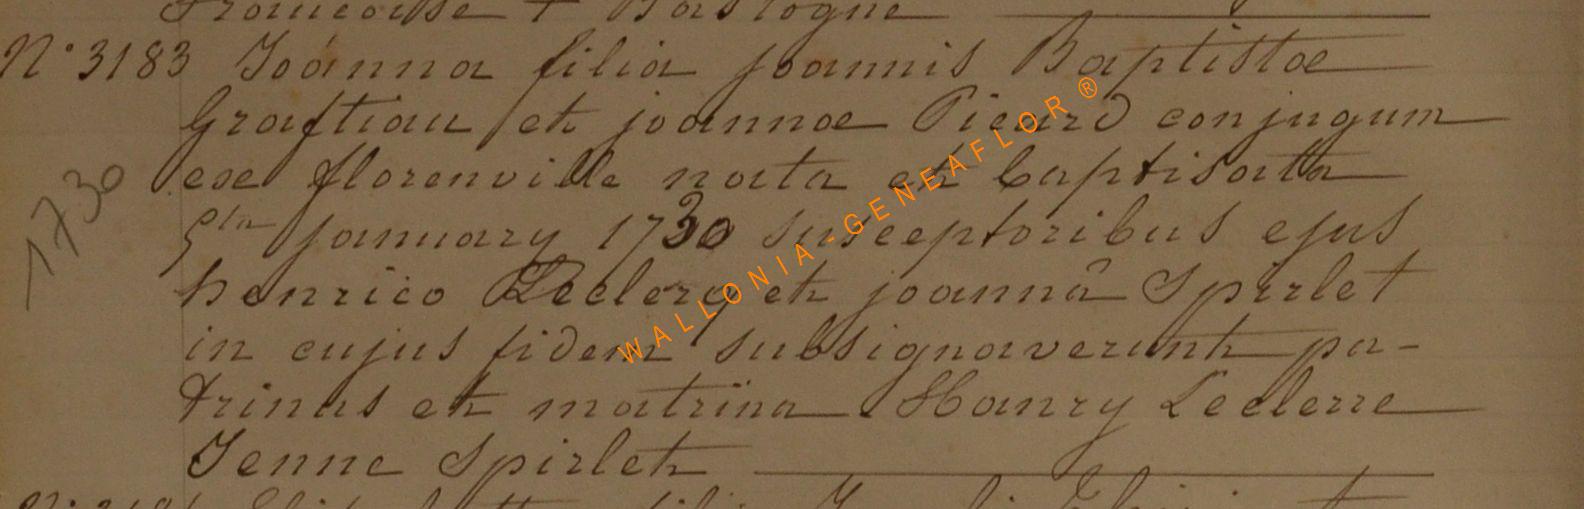 Francoise + Bastogne
N° 3183 Joánna filia joannis Baptistae
Graftiau et joannae Picard conjugum
exe florenville nata et baptisata
1730
5ta january 1730 susceptoribus ejus
henrico Leclercq et joannâ Spirlet
in cujus fidem subsignaverunt pa-
trinus et matrina Hanry Leclerre
Jenne Spirlet
WALLONIA-GENEAFLOR®